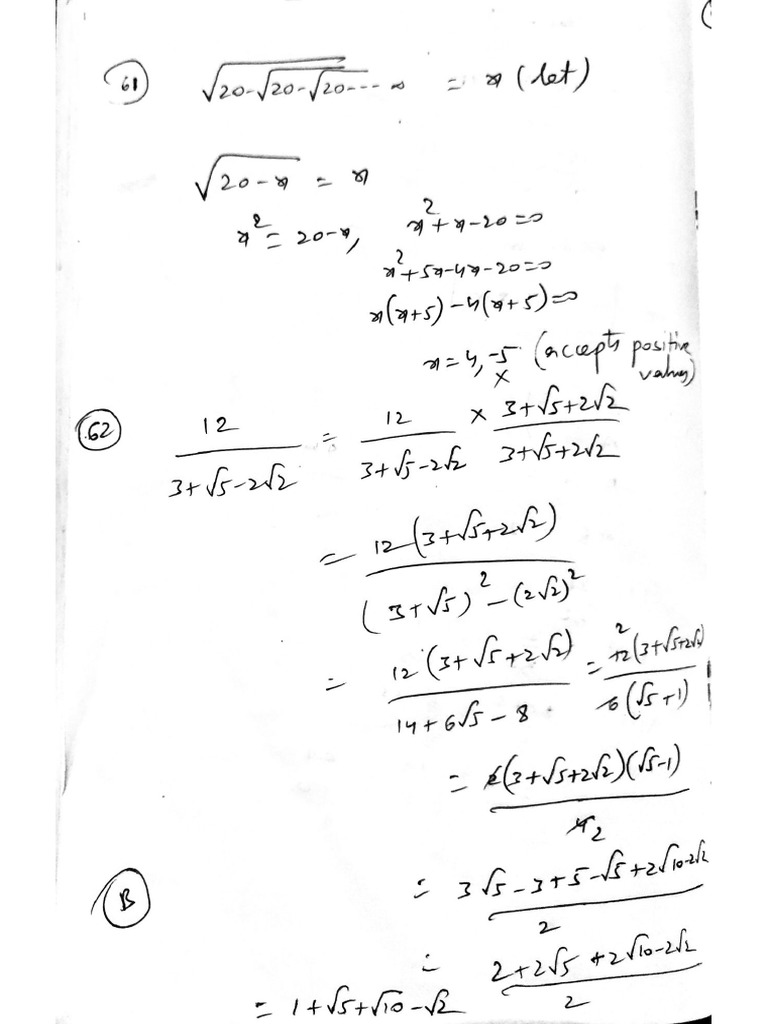 61 √20-√20-√20--- ∞ = x (let)
√20-x = x
x² = 20-x, x²+x-20=0
x²+5x-4x-20=0
x(x+5)-4(x+5)=0
x=4, -5 (accepts positive values)
×
62 12/(3+√5-2√2) = 12/(3+√5-2√2) × (3+√5+2√2)/(3+√5+2√2)
= 12(3+√5+2√2)/((3+√5)²-(2√2)²)
= 12(3+√5+2√2)/(14+6√5-8) = 12 2(3+√5+2√2)/6(√5+1)
= 2(3+√5+2√2)(√5-1)/4 2
B = (3√5-3+5-√5+2√10-2√2)/2
= (2+2√5+2√10-2√2)/2
= 1+√5+√10-√2